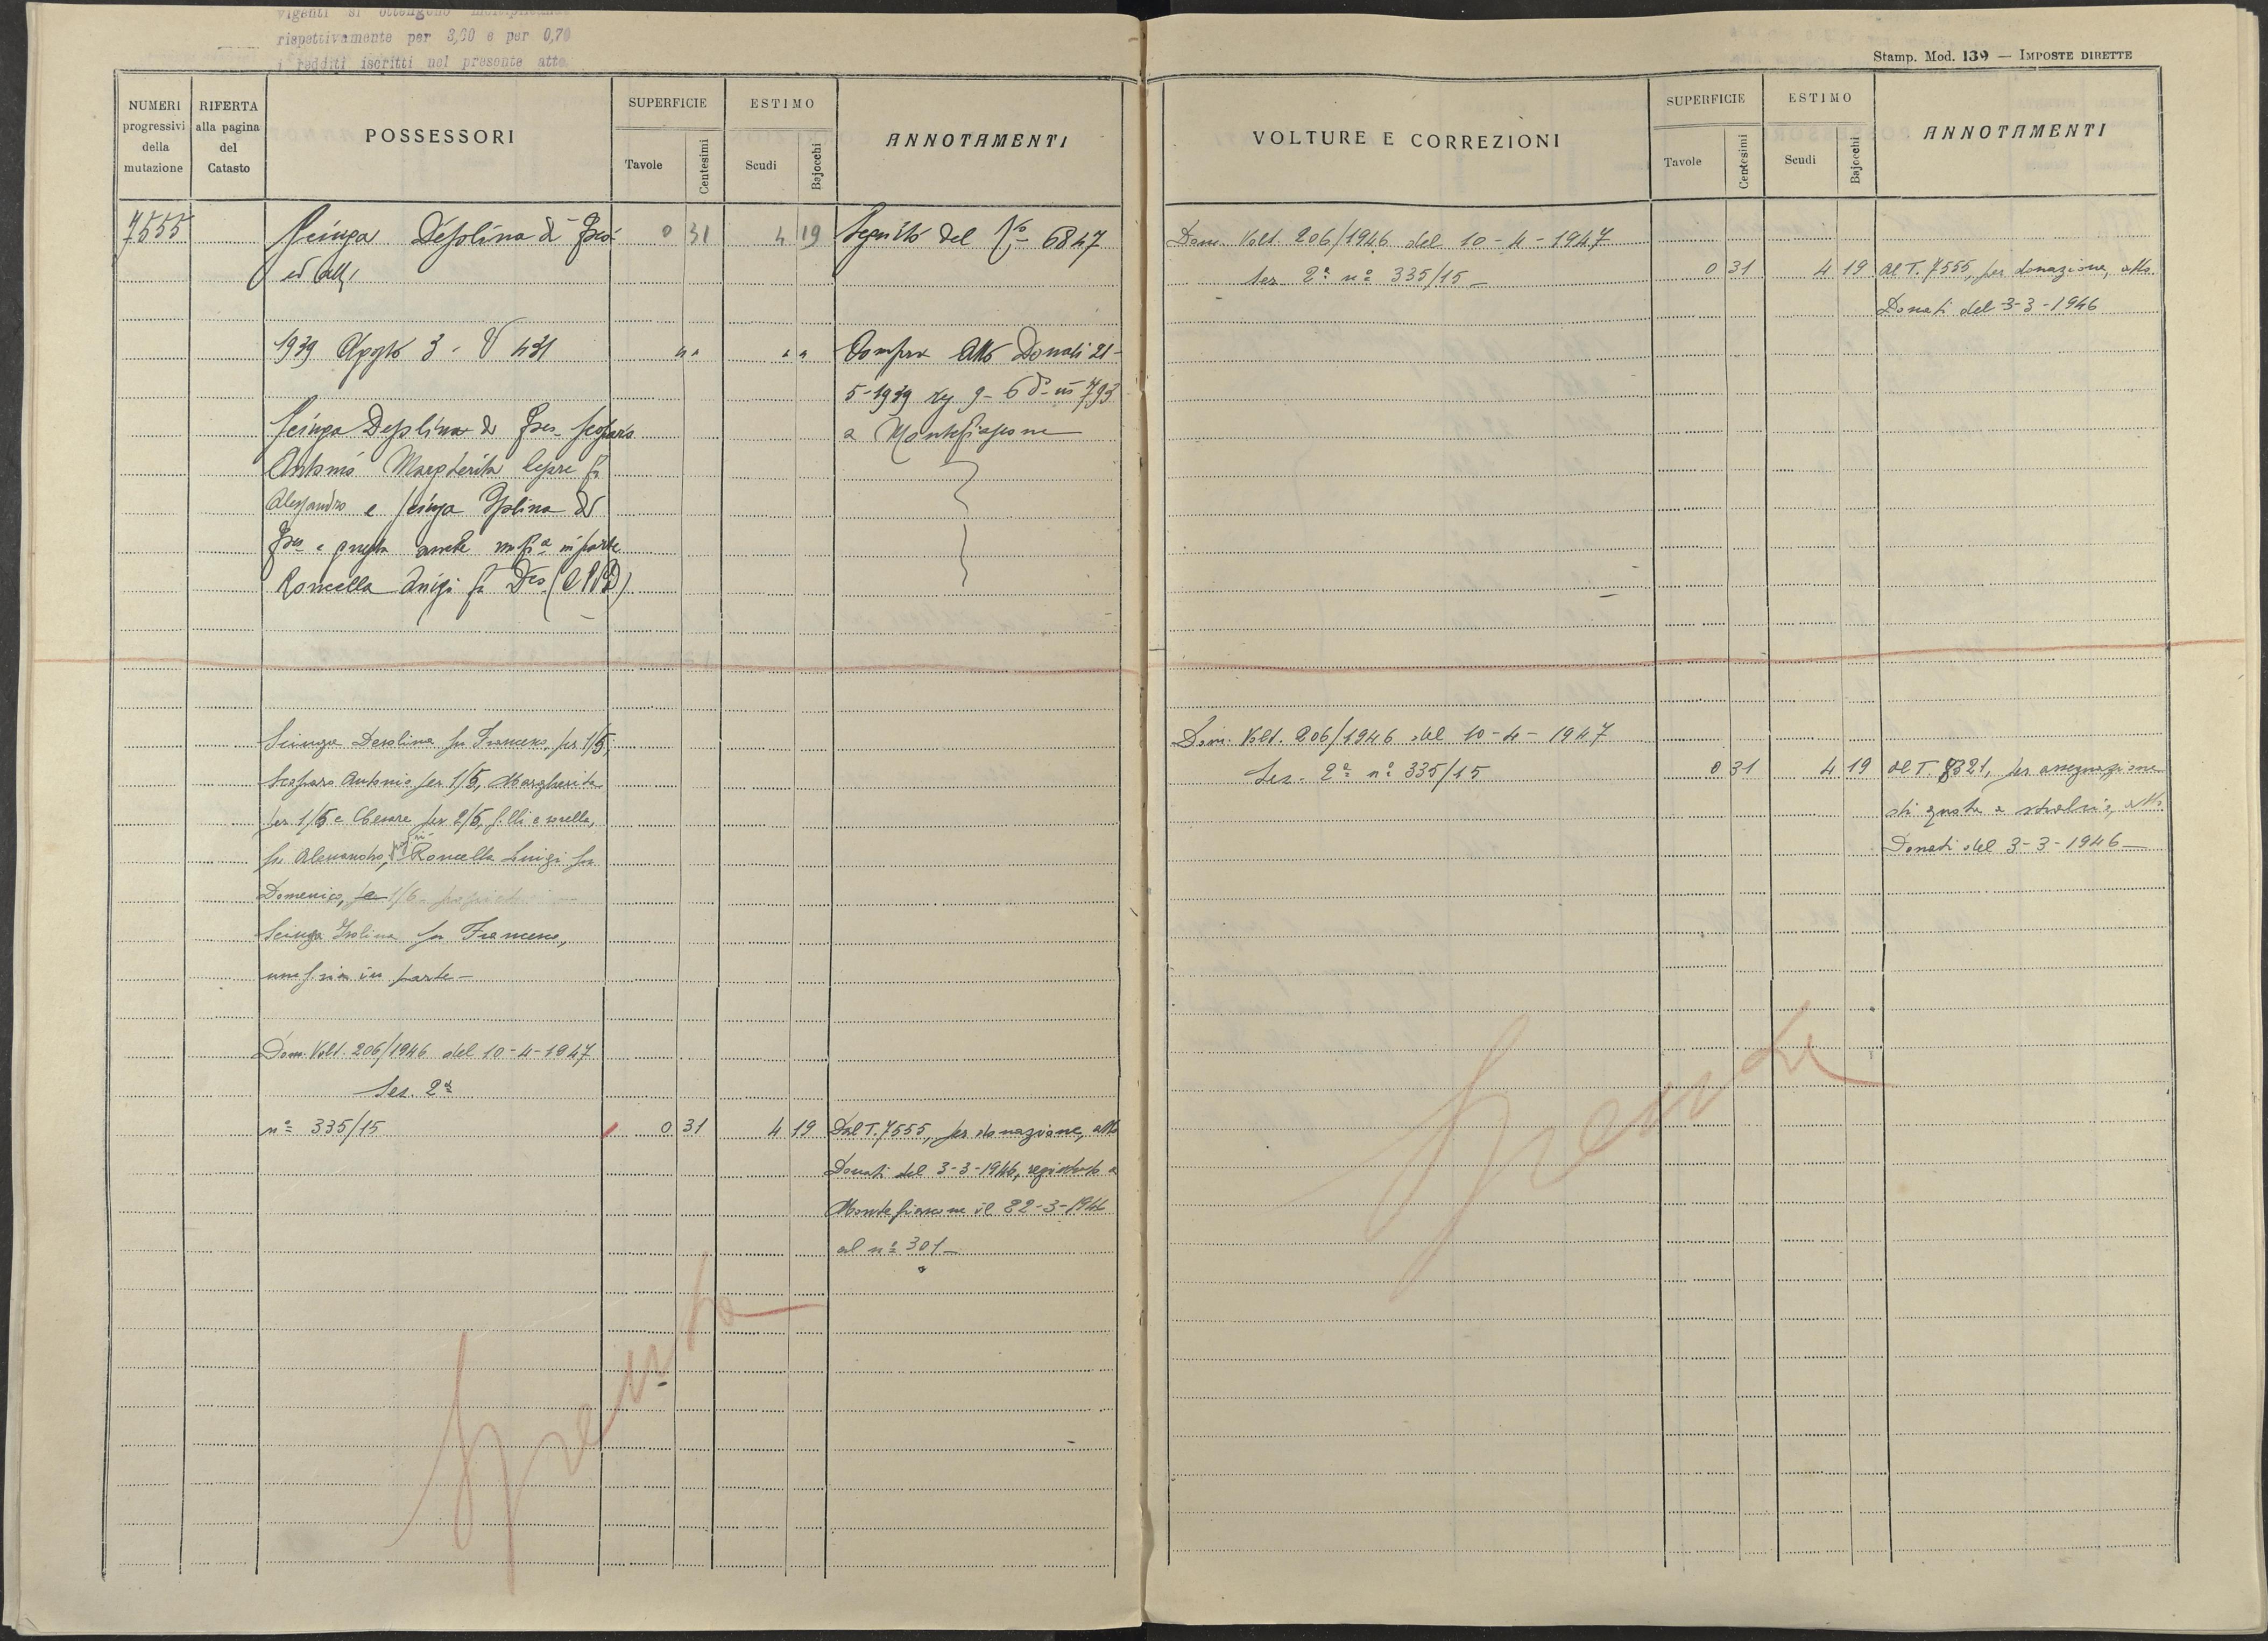 vigenti si ottengono
rispettivamente per 3,60 e per 0,70
i redditi iscritti nel presente atto.
Stamp. Mod. 139 — IMPOSTE DIRETTE
NUMERI progressivi della mutazione
RIFERTA alla pagina del Catasto
POSSESSORI
SUPERFICIE
Tavole
Centesimi
ESTIMO
Scudi
Bajocchi
ANNOTAMENTI
VOLTURE E CORREZIONI
SUPERFICIE
Tavole
Centesimi
ESTIMO
Scudi
Bajocchi
ANNOTAMENTI
7555 Scinga Desolina di Fsco 0 31 4 19 Seguito del No 6847
ed altri
1939 Agosto 3 - V 431 " " " " Compra Atto Donati 21-
5-1939 reg 9-6 do no 793
a Montefiascone
Scinga Desolina di Fsco Scoparo
Antonio Margherita Cesare fu
Alessandro e Scinga Isolina di
Fsco e questa anche usufra in parte
Roncella Luigi fu Dco
Scinga Desolina fu Francesco, per 1/5,
Scoparo Antonio per 1/5, Margherita
per 1/5 e Cesare per 2/5, f.lli e sorella,
fu Alessandro, Roncella Luigi fu
Domenico, per 1/6
Scinga Isolina fu Francesco,
usuf.ria in parte —
Dom. Volt. 206/1946 del 10-4-1947
Sez. 2ª
nº 335/15 0 31 4 19 Dal T. 7555, per donazione, atto
Donati del 3-3-1946, registrato a
Montefiascone il 22-3-1946
al nº 301 —
Spenta
Dom. Volt. 206/1946 del 10-4-1947
Sez. 2ª nº 335/15 — 0 31 4 19 al T. 7555, per donazione, atto
Donati del 3-3-1946
Dom. Volt. 206/1946 del 10-4-1947
Sez. 2ª nº 335/15 0 31 4 19 al T. 8321, per assegnazione
di quota a stralcio, atto
Donati del 3-3-1946 —
Spenta